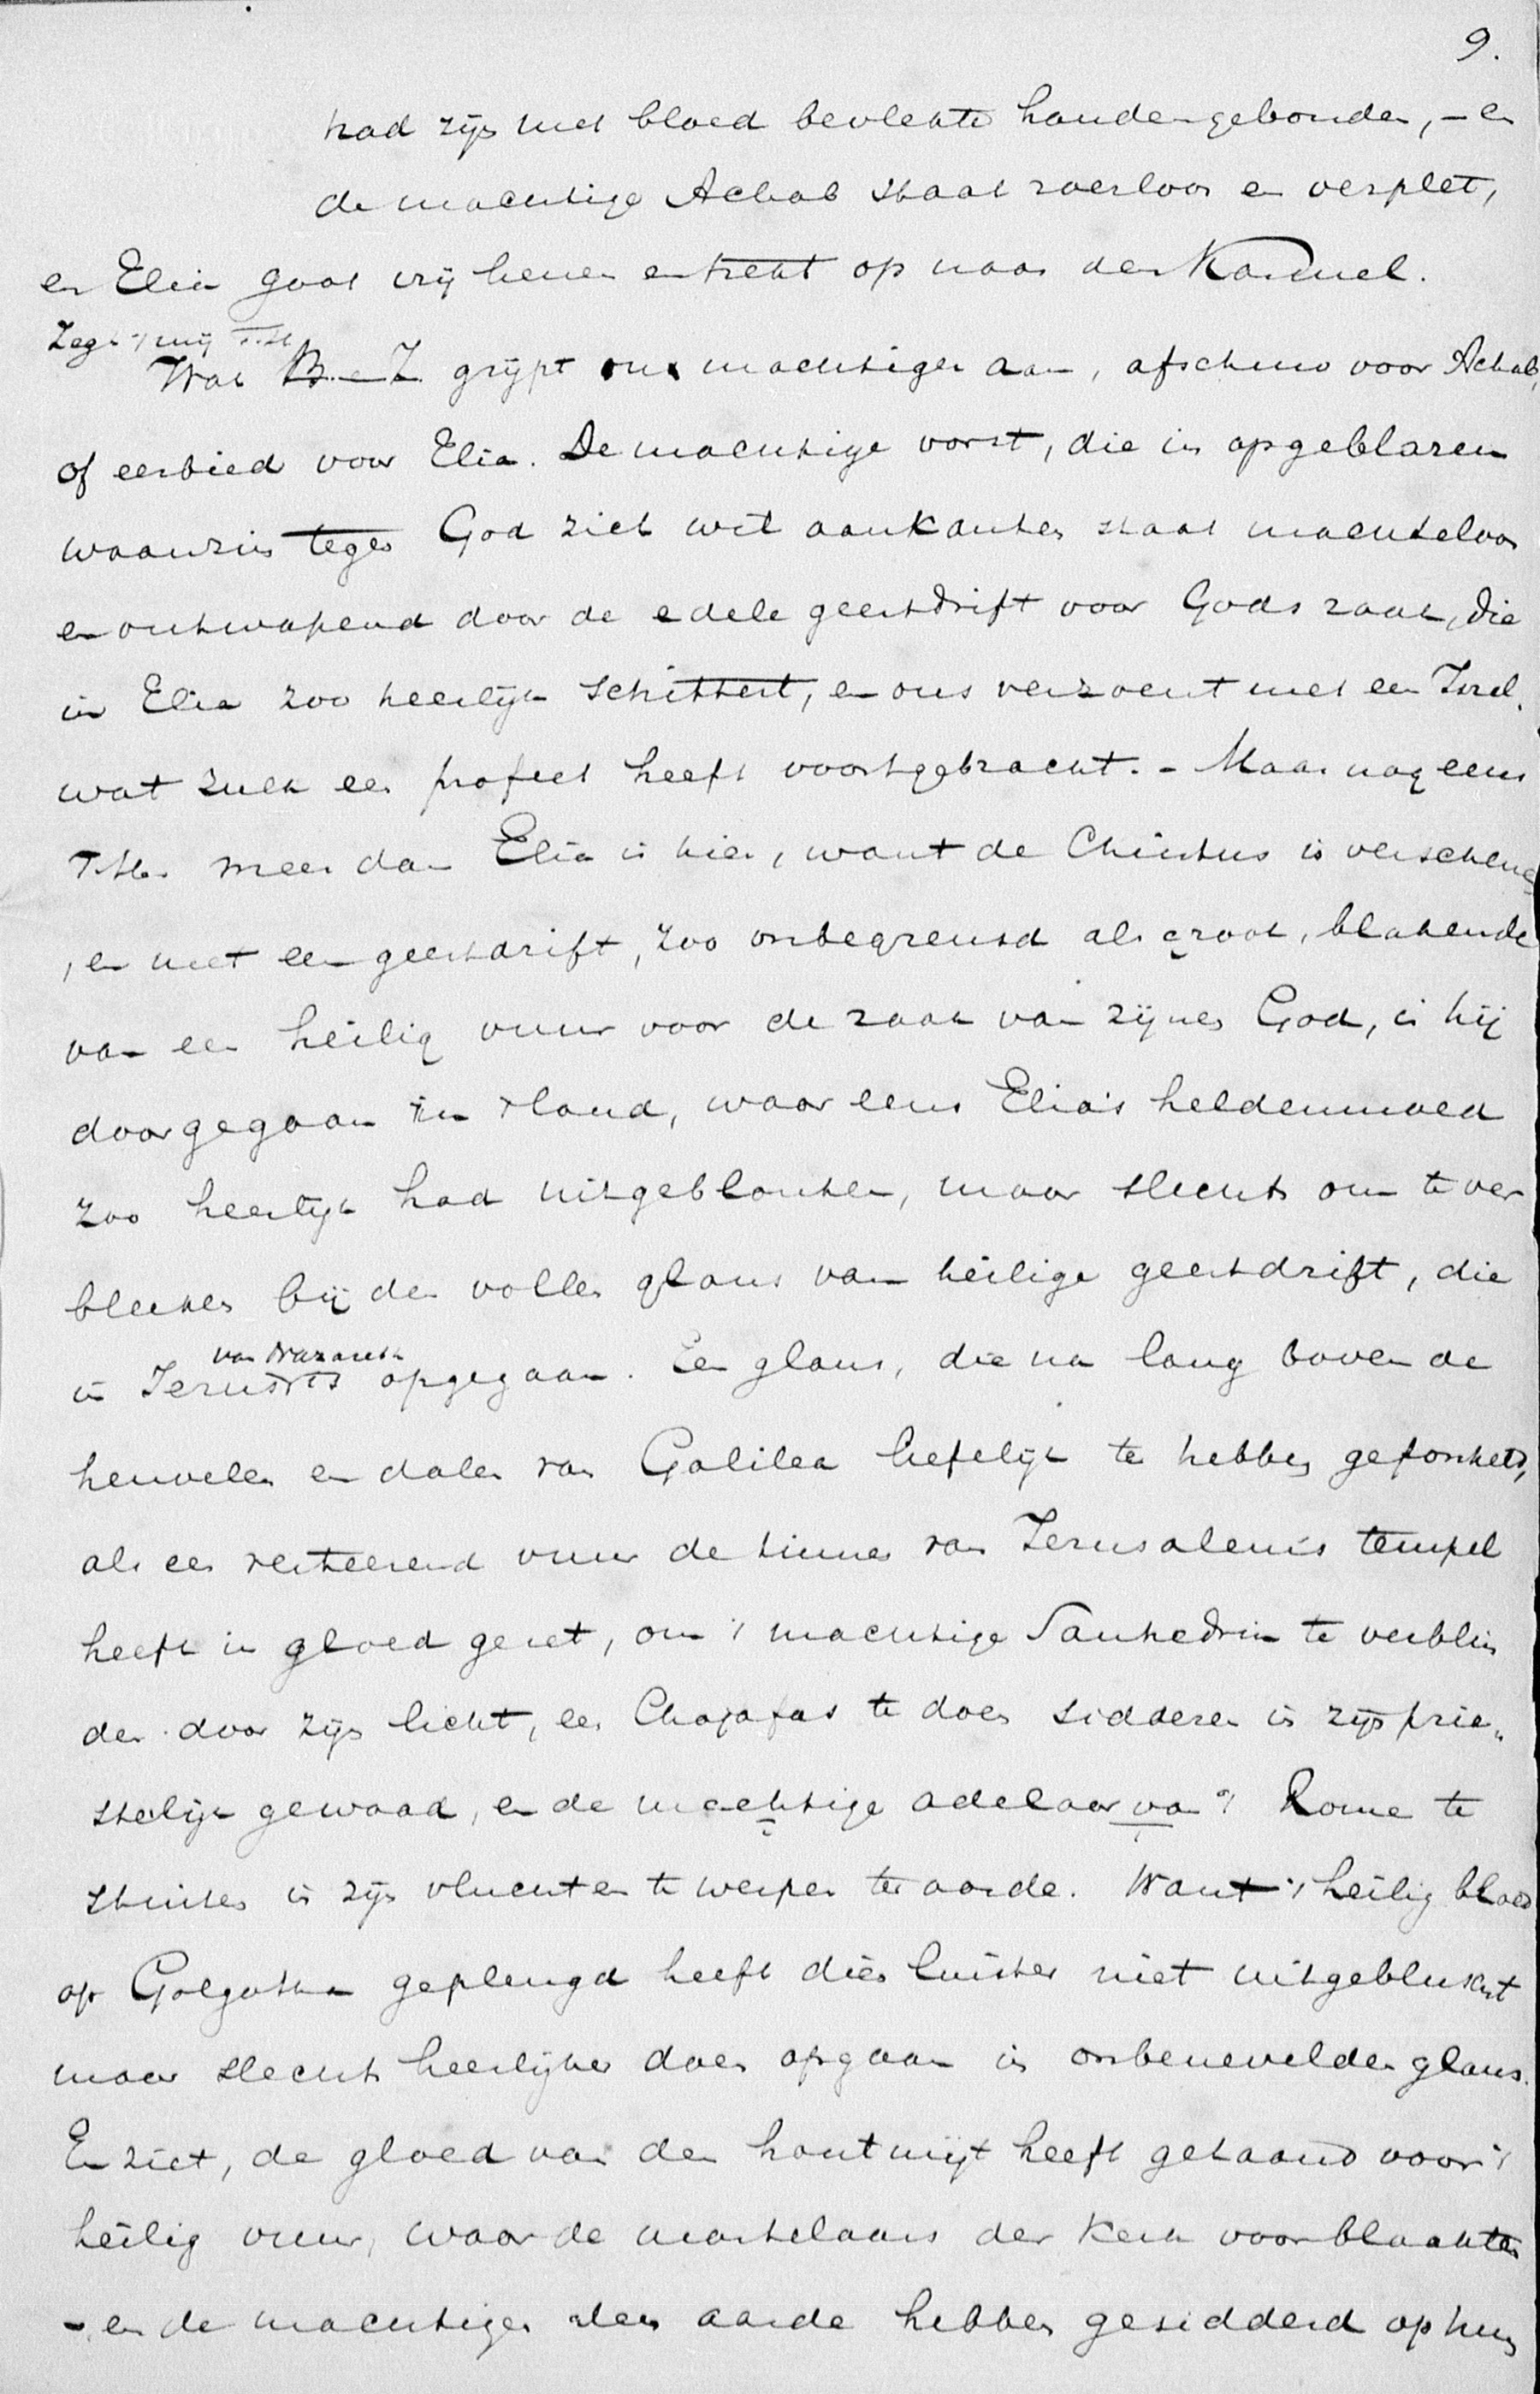 9.
had zijn met bloed bevlekte handen gebonden, – en
de machtige Achab staat roerloos en verplet,
en Elia gaat vrij henen en trekt op naar den Karmel.
Zegt 't mij T.H.
Wat B. en Z. grijpt ons machtiger aan, afschuw voor Achab,
of eerbied voor Elia. De machtige vorst, die in opgeblazen
waanzin tegen God zich wil aankanten staat machteloos
en ontwapend door de edele geestdrift voor Gods zaak, die
in Elia zoo heerlijk schittert, en ons verzoent met een Israel,
wat zulk een profeet heeft voortgebracht. – Maar nog eens
T.H. meer dan Elia is hier, want de Christus is verschenen
, en met een geestdrift, zoo onbegrensd als groot, blakende
van een heilig vuur voor de zaak van zijnen God, is hij
doorgegaan in 't land, waar eens Elia's heldenmoed
zoo heerlijk had uitgeblonken, maar slechts om te ver
bleeken bij den vollen glans van heilige geestdrift, die
van Nazareth
in Jezus is opgegaan. Een glans, die na lang boven de
heuvelen en dalen van Galilea liefelijk te hebben gefonkeld,
als een verteerend vuur de tinnen van Jerusalem's tempel
heeft in gloed gezet, om 't machtige Sanhedrin te verblin
den door zijn licht, een Chajafas te doen sidderen in zijn prie„
sterlijk gewaad, en de machtige adelaar van 't Rome te
stuiten in zijn vlucht en te werpen ter aarde. Want 't heilig bloed
op Golgotha geplengd heeft dien luister niet uitgebluscht
maar slechts heerlijker doen opgaan in onbenevelden glans.
En ziet, de gloed van den houtmijt heeft getaand voor 't
heilig vuur, waar de martelaars der Kerk voor blaakten
– en de machtigen der aarde hebben gesidderd op hun